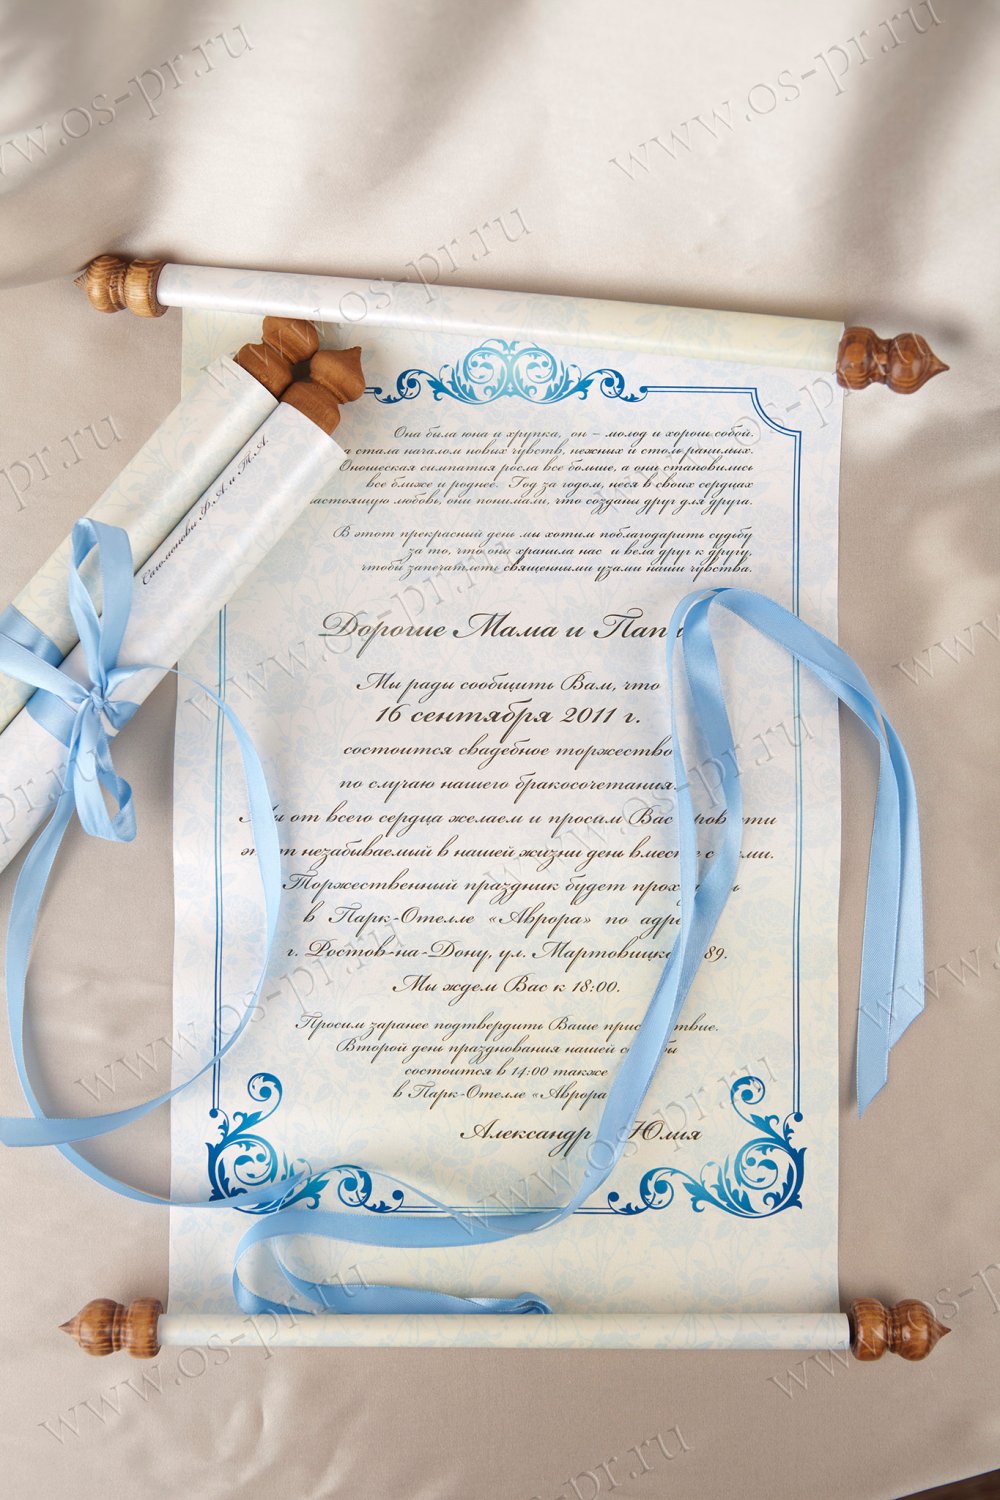 Она была юна и хрупка, он – молод и хорош собой.
стала началом новых чувств, нежных и столь ранимых.
Юношеская симпатия росла все больше, а они становились
все ближе и роднее. Год за годом, неся в своих сердцах
настоящую любовь, они понимали, что созданы друг для друга.
В этот прекрасный день мы хотим поблагодарить судьбу
за то, что она хранила нас и вела друг к другу,
чтобы запечатлеть священными узами наши чувства.
Дорогие Мама и Пап
Мы рады сообщить Вам, что
16 сентября 2011 г.
состоится свадебное торжество
по случаю нашего бракосочетания.
Мы от всего сердца желаем и просим Вас
незабываемый в нашей жизни день вместе с
Торжественный праздник будет
в Парк-Отелле «Аврора» по адр
г. Ростов-на-Дону, ул. Мартовицк 89.
Мы ждем Вас к 18:00.
Просим заранее подтвердить Ваше
Второй день празднования нашей
состоится в 14:00 также
в Парк-Отелле «Аврора
Александр Юлия
и Т.А.
www.os-pr.ru